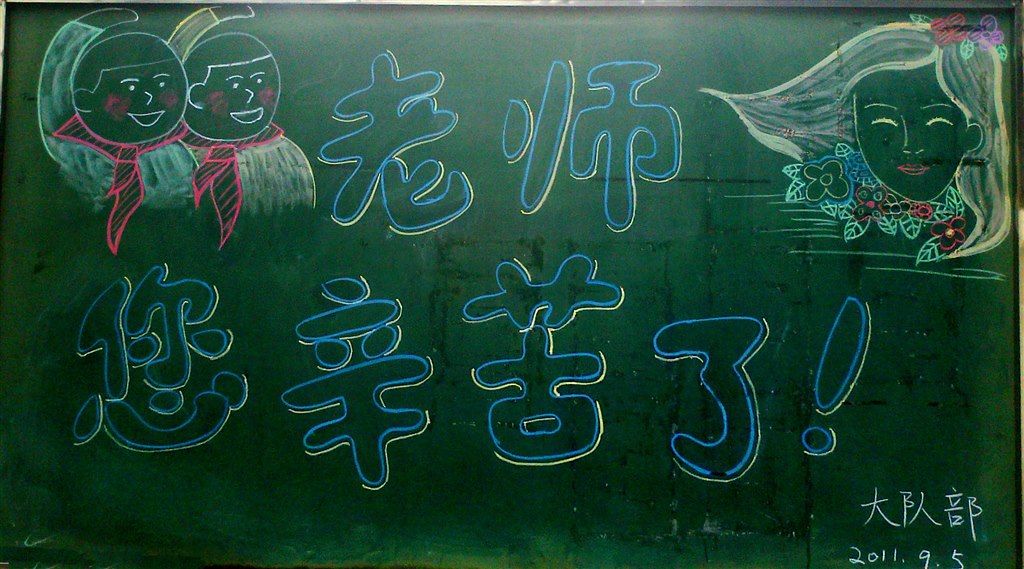 老师
您辛苦了!
大队部
2011.9.5